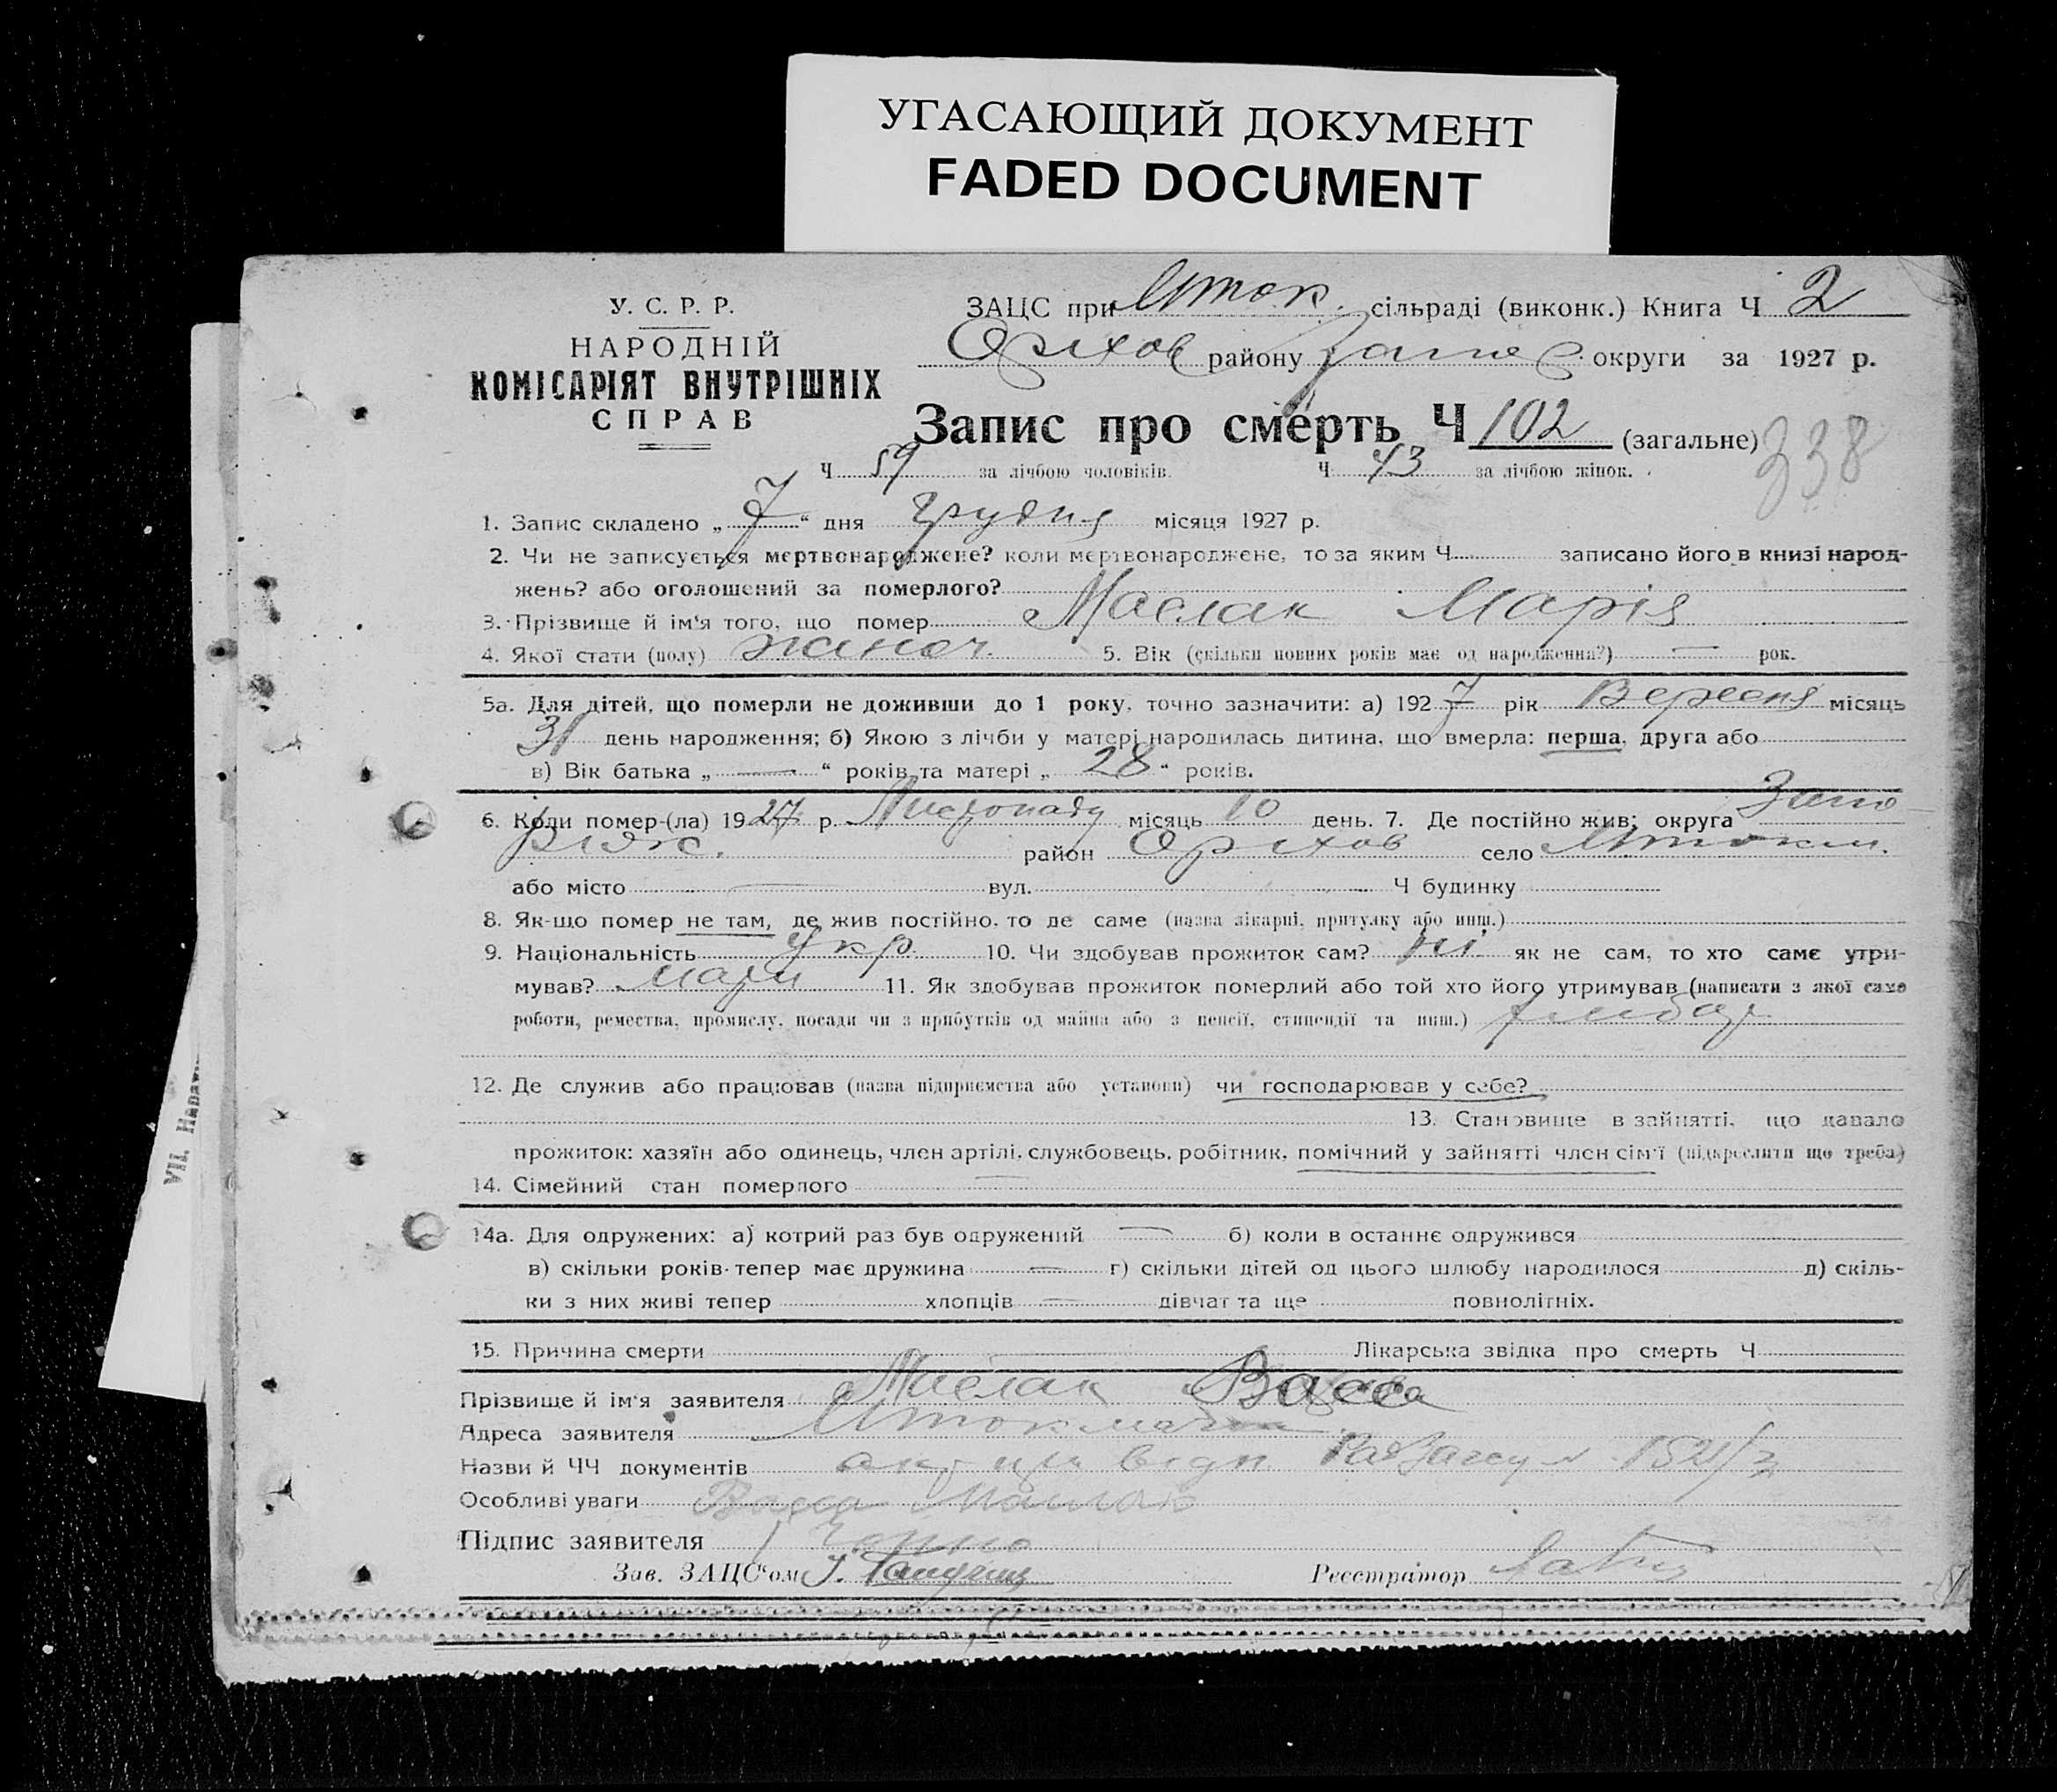 УГАСАЮЩИЙ ДОКУМЕНТ
FADED DOCUMENT
У. С. Р. Р.
НАРОДНІЙ
КОМІСАРІЯТ ВНУТРІШНІХ
СПРАВ
ЗАЦС при Шток. сільраді (виконк.) Книга Ч 2
Оріхов району Запоє округи за 1927 р.
Запис про смерть Ч 102 (загальне) 338
Ч 59 за лічбою чоловіків. Ч 43 за лічбою жінок.
1. Запис складено „ 7 “ дня грудня місяця 1927 р.
2. Чи не записується мертвонароджене? коли мертвонароджене, то за яким Ч записано його в книзі народ-
жень? або оголошений за померлого?
3. Прізвище й ім'я того, що помер Маслак Марія
4. Якої стати (полу) жіноч. 5. Вік (скільки повних років має од народження?) — рок.
5а. Для дітей, що померли не доживши до 1 року, точно зазначити: а) 1927 рік Вересня місяць
31 день народження; б) Якою з лічби у матері народилась дитина, що вмерла: перша, друга або
в) Вік батька „ — “ років та матері „ 28 “ років.
6. Коли помер-(ла) 1927 р. Листопаду місяць 10 день. 7. Де постійно жив: округа Запо-
ріж. район Оріхов село Штокм.
або місто — вул. Ч будинку
8. Як-що помер не там, де жив постійно, то де саме (назва лікарні, притулку або инш.)
9. Національність Укр. 10. Чи здобував прожиток сам? ні як не сам, то хто саме утри-
мував? мати 11. Як здобував прожиток померлий або той хто його утримував (написати з якої саме
роботи, ремества, промислу, посади чи з прибутків од майна або з пенсії, стипендії та инш.)
12. Де служив або працював (назва підприємства або установи) чи господарював у себе?
13. Становище в зайнятті, що давало
прожиток: хазяїн або одинець, член артілі, службовець, робітник, помічний у зайнятті член сім'ї (підкреслити що треба)
14. Сімейний стан померлого —
14а. Для одружених: а) котрий раз був одружений — б) коли в останнє одружився
в) скільки років тепер має дружина — г) скільки дітей од цього шлюбу народилося д) скіль-
ки з них живі тепер хлопців — дівчат та ще повнолітніх.
15. Причина смерти — Лікарська звідка про смерть Ч
Прізвище й ім'я заявителя Маслак Васса
Адреса заявителя
Назви й ЧЧ документів
Особливі уваги Васса Маслак
Підпис заявителя
Зав. ЗАЦС‘ом
Реєстратор